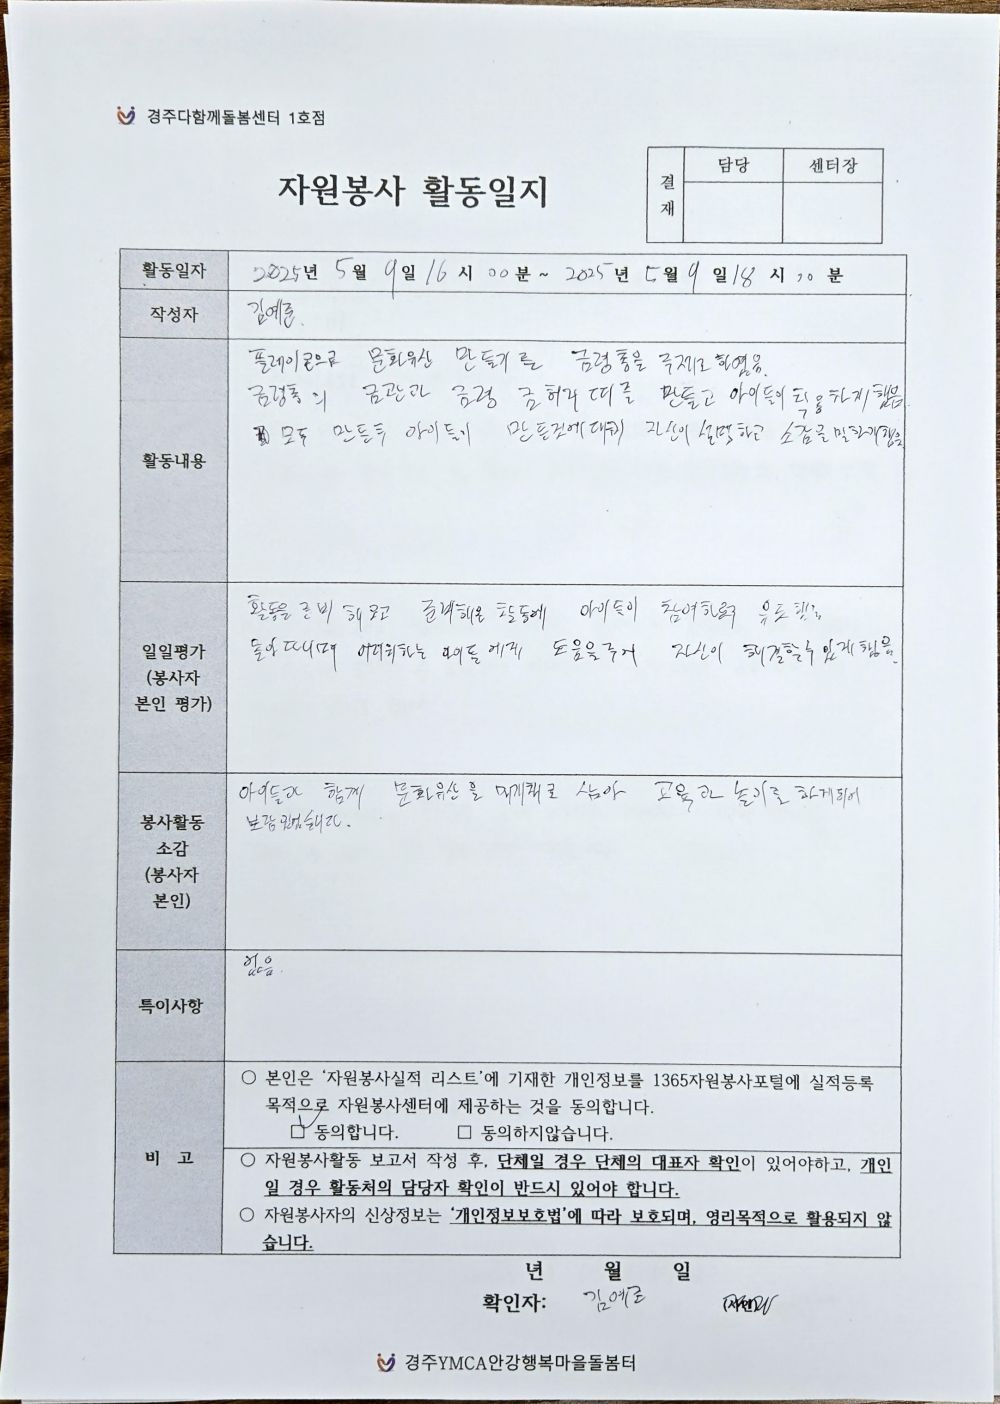 경주다함께돌봄센터 1호점
자원봉사 활동일지
결재 담당 센터장
활동일자 2025년 5월 9일 16시 00분 ~ 2025년 5월 9일 18시 00분
작성자 김예
활동내용
플레이콘으로 문화유산 만들기를 금령총을 주제로 하였음.
금령총의 금관과 금령 금허리띠를 만들고 아이들이 착용하게 했음.
모두 만든후 아이들이 만든것에대해 자신이 설명하고 소감을 말하게했음
일일평가
(봉사자
본인 평가)
활동을 준비해오고 준비해온 활동에 아이들이 참여하도록 유도했음
돌아다니며 어려워하는 아이들에게 도움을주어 자신이 해결할수있게 했음.
봉사활동
소감
(봉사자
본인)
아이들과 함께 문화유산을 매개체로 삼아 교육과 놀이를 하게되어
보람있었습니다.
특이사항 없음.
비 고
○ 본인은 ‘자원봉사실적 리스트’에 기재한 개인정보를 1365자원봉사포털에 실적등록
목적으로 자원봉사센터에 제공하는 것을 동의합니다.
□ 동의합니다. □ 동의하지않습니다.
○ 자원봉사활동 보고서 작성 후, 단체일 경우 단체의 대표자 확인이 있어야하고, 개인
일 경우 활동처의 담당자 확인이 반드시 있어야 합니다.
○ 자원봉사자의 신상정보는 ‘개인정보보호법’에 따라 보호되며, 영리목적으로 활용되지 않
습니다.
년 월 일
확인자: 김예 (서명)
경주YMCA안강행복마을돌봄터